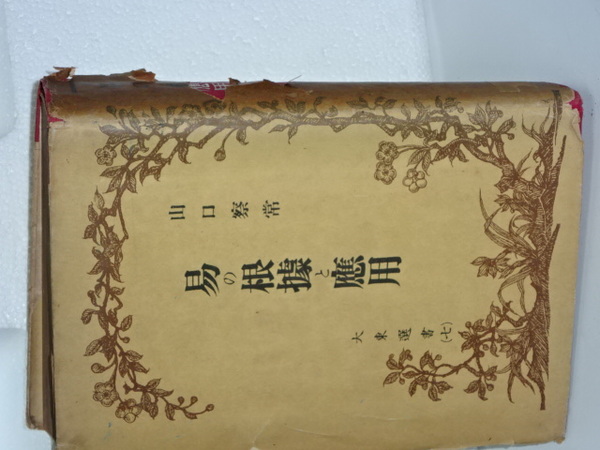 大東選書(七)
易の根據と應用
山口察常